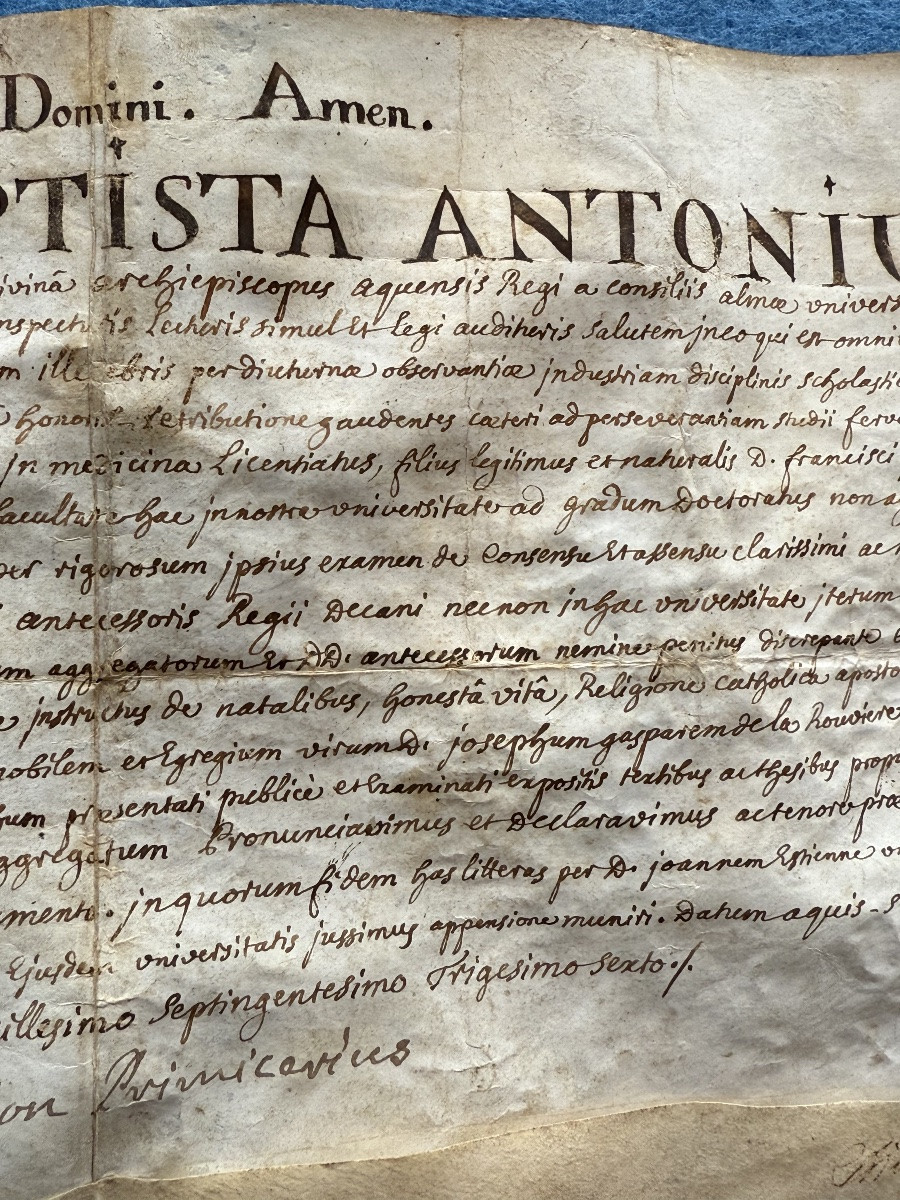 Domini. Amen.
PTISTA ANTONIU
ivinâ archiepiscopus aquensis Regi a consiliis almæ univers
nspecturis Lecturis simul Et legi audituris Salutem jn eo qui est omni
m illecebris per diuturnæ observantiæ jndustriam disciplinis scholasti
honoris Retributione gaudentes cæteri ad perseverantiam studii ferv
jn medicina Licentiatus, filius legitimus et naturalis D. francisci
facultate hac jn nostra universitate ad gradum Doctoratus non a
per rigorosum jpsius examen de Consensu Et assensu clarissimi ac
antecessoris Regii Decani necnon jn hac universitate jterum
um aggregatorum Et DD. antecessorum nemine penitus discrepante
e jnstructus de natalibus, honestâ vitâ, Religione catholica aposto
nobilem et Egregium virum D. josephum gasparem de la Rouviere
hum præsentati publicè et Examinati expositis textibus ac thesibus prop
aggregatum Pronunciavimus et Declaravimus ac tenore præ
amento. jn quorum fidem has litteras per D. joannem Estienne
Ejusdem universitatis jussimus appensione muniri. Datum aquis-S
illesimo Septingentesimo Trigesimo Sexto ./.
on Primicerius